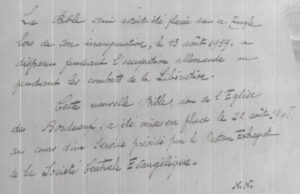 La Bible qui avait été placée dans ce Temple
lors de son inauguration, le 13 août 1939, a
disparu pendant l'occupation allemande ou
pendant les combats de la Libération.
Cette nouvelle Bible, don de l'Eglise
des, a été mise en place le 22 août
au cours d'un Service présidé par le Pasteur
de la Société Centrale Evangélique.